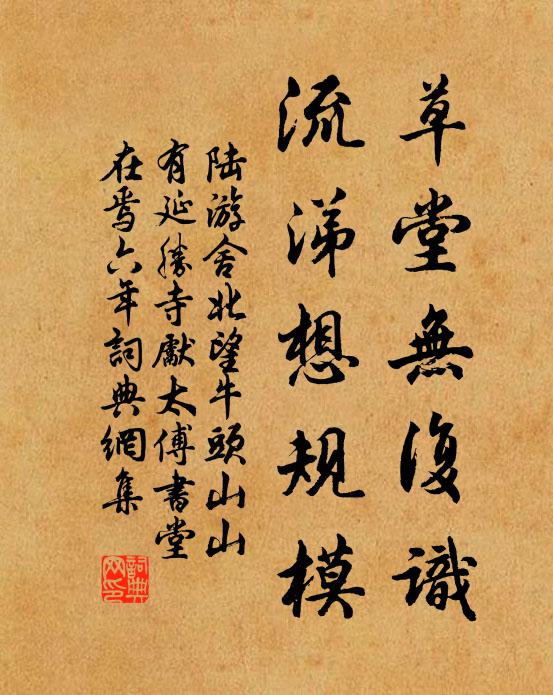 草堂無復識
流涕想規模
陸游舍北望牛頭山山
有延勝寺獻太傅書堂
在焉六年詞典網集
詞典網印